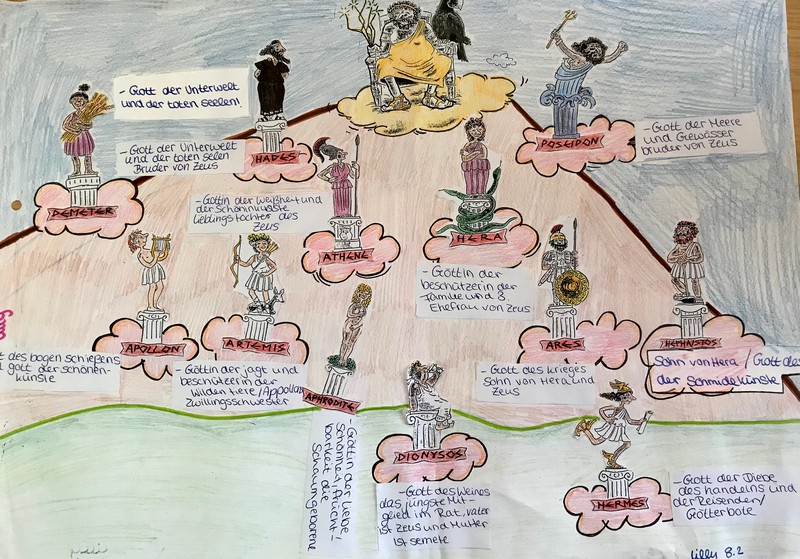 - Gott der Unterwelt
und der toten Seelen!
- Gott der Unterwelt
und der toten selen
Bruder von Zeus
HADES
DEMETER
POSEIDON
- Gott der Meere
und Gewässer
bruder von Zeus
- Göttin der Weißheit und
der Schöninkünste
lieblingstochter des
Zeus
ATHENE
HERA
- Göttin der
beschützerin der
Familie und 3.
Ehefrau von Zeus
APOLLON
des bogen schießens
gott der schönen-
künste
ARTEMIS
- Göttin der jagt und
beschützerin der
Wilden tiere/Appollos
Zwillingsschwester
ARES
- Gott des krieges
Sohn von Hera und
Zeus
HEPHÄSTOS
Sohn von Hera / Gott des
der Schmiedekünste
APHRODITE
- Göttin der liebe,
Schönheit, frucht-
barkeit die
Schaumgeborene
DIONYSOS
- Gott des Weines
das jüngste Mit-
glied im Rat, vater
ist Zeus und Mutter
ist semele
HERMES
- Gott der Diebe
des handelns und
der Reisenden/
Götterbote
Lilly 8.2